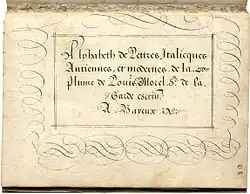 Alphabeth de Lettres Italicques
Antiennes et modernes de la
plume de Louis Morel Sr. de la
Garde escriu.
A Bayeux